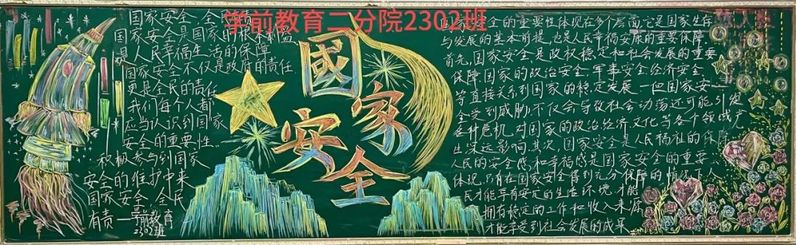 学前教育二分院2302班
国家安全,全民
国
是人民幸福生活的保障
国家安全不仅是政府的责任
更是全民的责任
我们每个人都
应当认识到国家
安全的重要性
积极参与到国家
安全的维护中来
国家安全人人
有责—学前教育
2302班
國家安全
国家安全的重要性体现在多个层面,它是国家生存
与发展的基本前提,也是人民幸福安康的重要保障
首先,国家安全是政权稳定和社会发展的重要
保障,国家的政治安全,军事安全,经济安全
等直接关系到国家的稳定发展,一旦国家安
全受到威胁,不仅会导致社会动荡还可能引发
各种危机,对国家的政治经济文化等各个领域产
生深远影响,其次,国家安全是人民福祉的保障
人民的安全感和幸福感是国家安全的重要
体现,只有在国家安全得到充分保障的情况下人
民才能享有安定的生活环境,才能
拥有稳定的工作和收入来源
才能享受到社会发展的成果